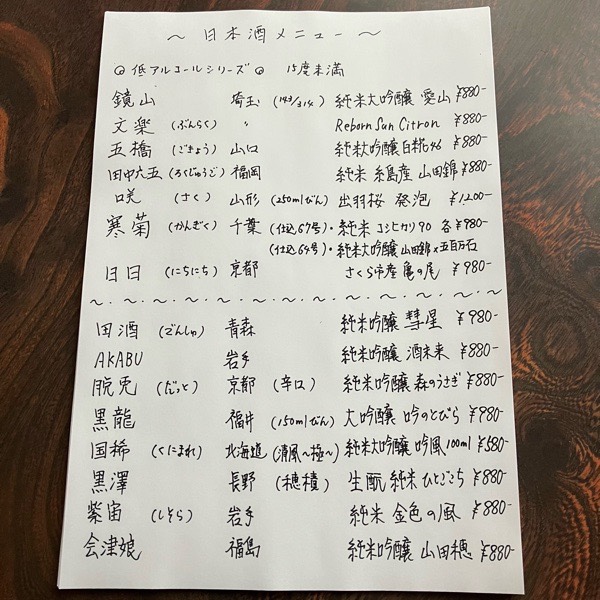 ～ 日本酒メニュー ～
低アルコールシリーズ 15度未満
鏡山 埼玉 純米大吟醸 愛山 ¥880-
文楽 (ぶんらく) 〃 Reborn Sun Citron ¥880-
五橋 (ごきょう) 山口 純米大吟醸 白糀 ¥880-
田中六五 (ろくじゅうご) 福岡 純米 糸島産 山田錦 ¥880-
咲 (さく) 山形 (250mlびん) 出羽桜 発泡 ¥1,200-
寒菊 (かんぎく) 千葉 (仕込67号)・純米 コシヒカリ90 各¥980-
(仕込64号)・純米大吟醸 山田錦×五百万石
日日 (にちにち) 京都 さくら市産 亀の尾 ¥980-
田酒 (でんしゅ) 青森 純米吟醸 彗星 ¥980-
AKABU 岩手 純米吟醸 酒未来 ¥880-
脱兎 (だっと) 京都 (辛口) 純米吟醸 森のうさぎ ¥880-
黒龍 福井 (150mlびん) 大吟醸 吟のとびら ¥980-
国稀 (くにまれ) 北海道 (清風～極～) 純米大吟醸 吟風 100ml ¥580-
黒澤 長野 (穂積) 生酛 純米 ひとごこち ¥880-
紫宙 (しそら) 岩手 純米 金色の風 ¥880-
会津娘 福島 純米吟醸 山田穂 ¥880-